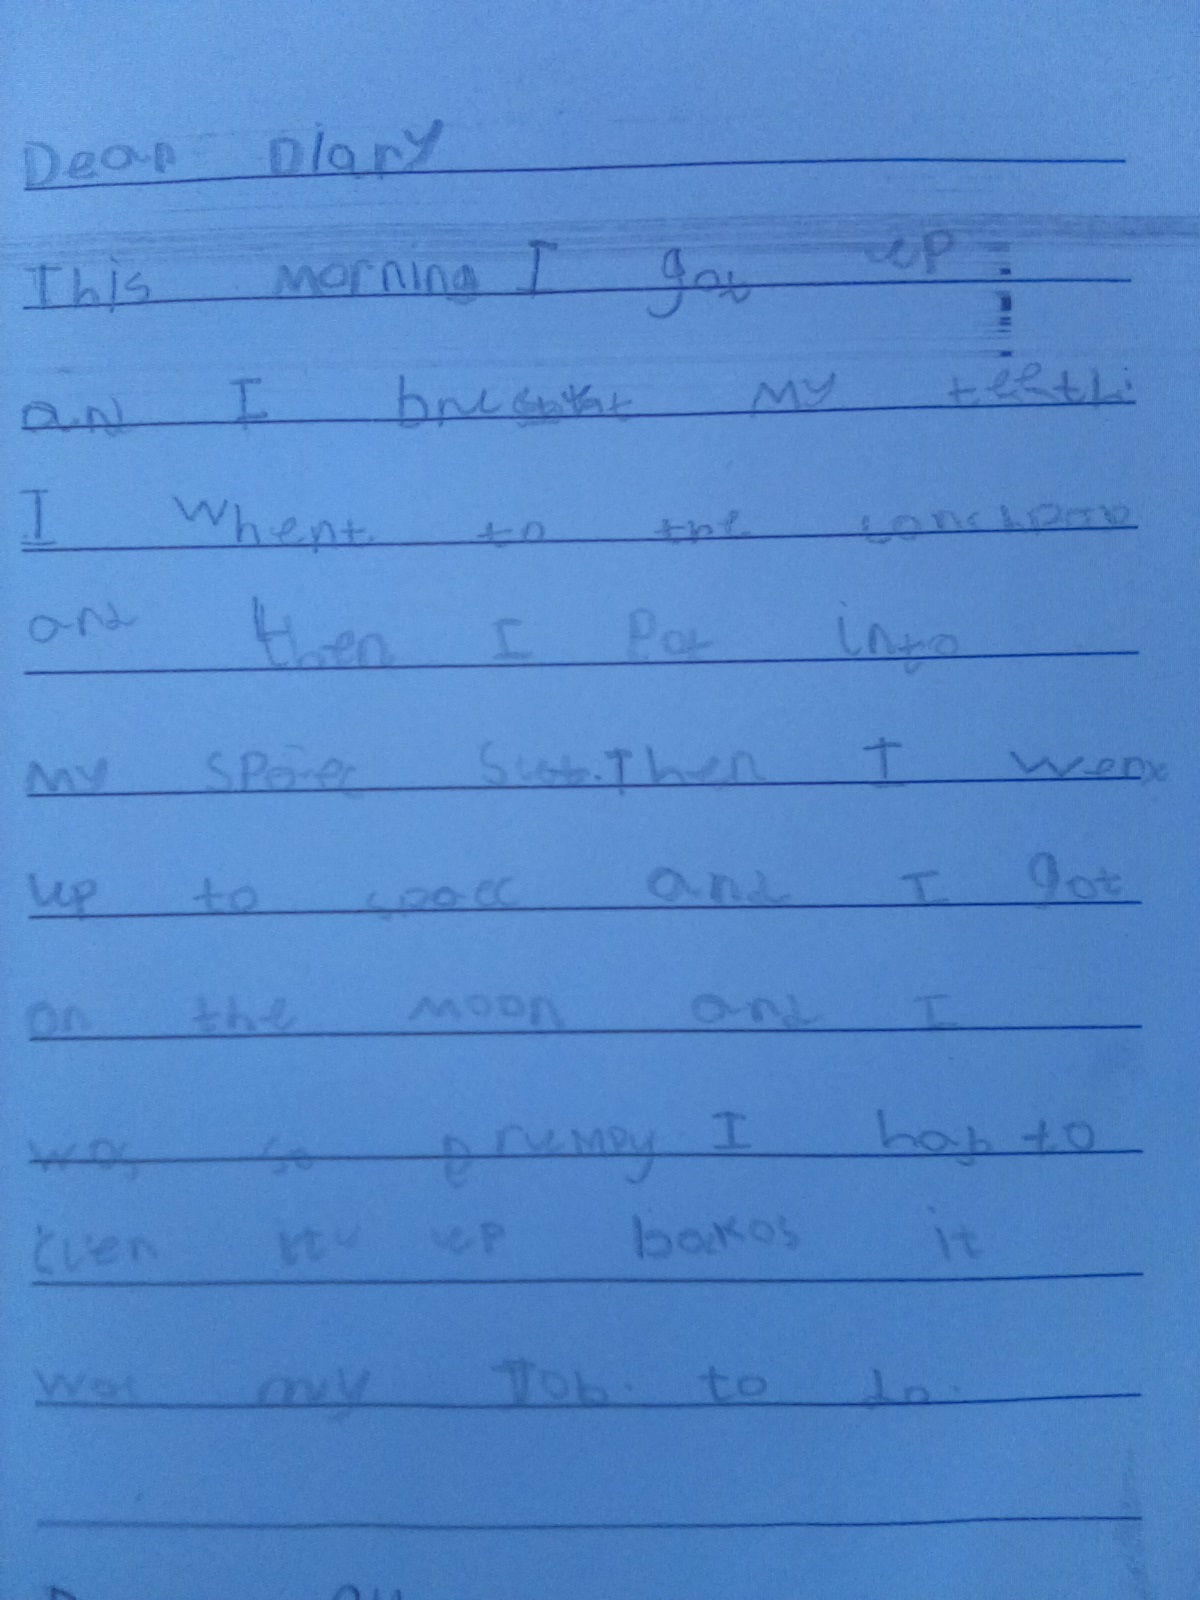 Dear Diary
This morning I got up
and I my teeth
I Whent to the
and then I Pot into
my Then I went
up to space and I got
on the moon and I
was so grumpy I had to
even up bakos it
was my Job to do.